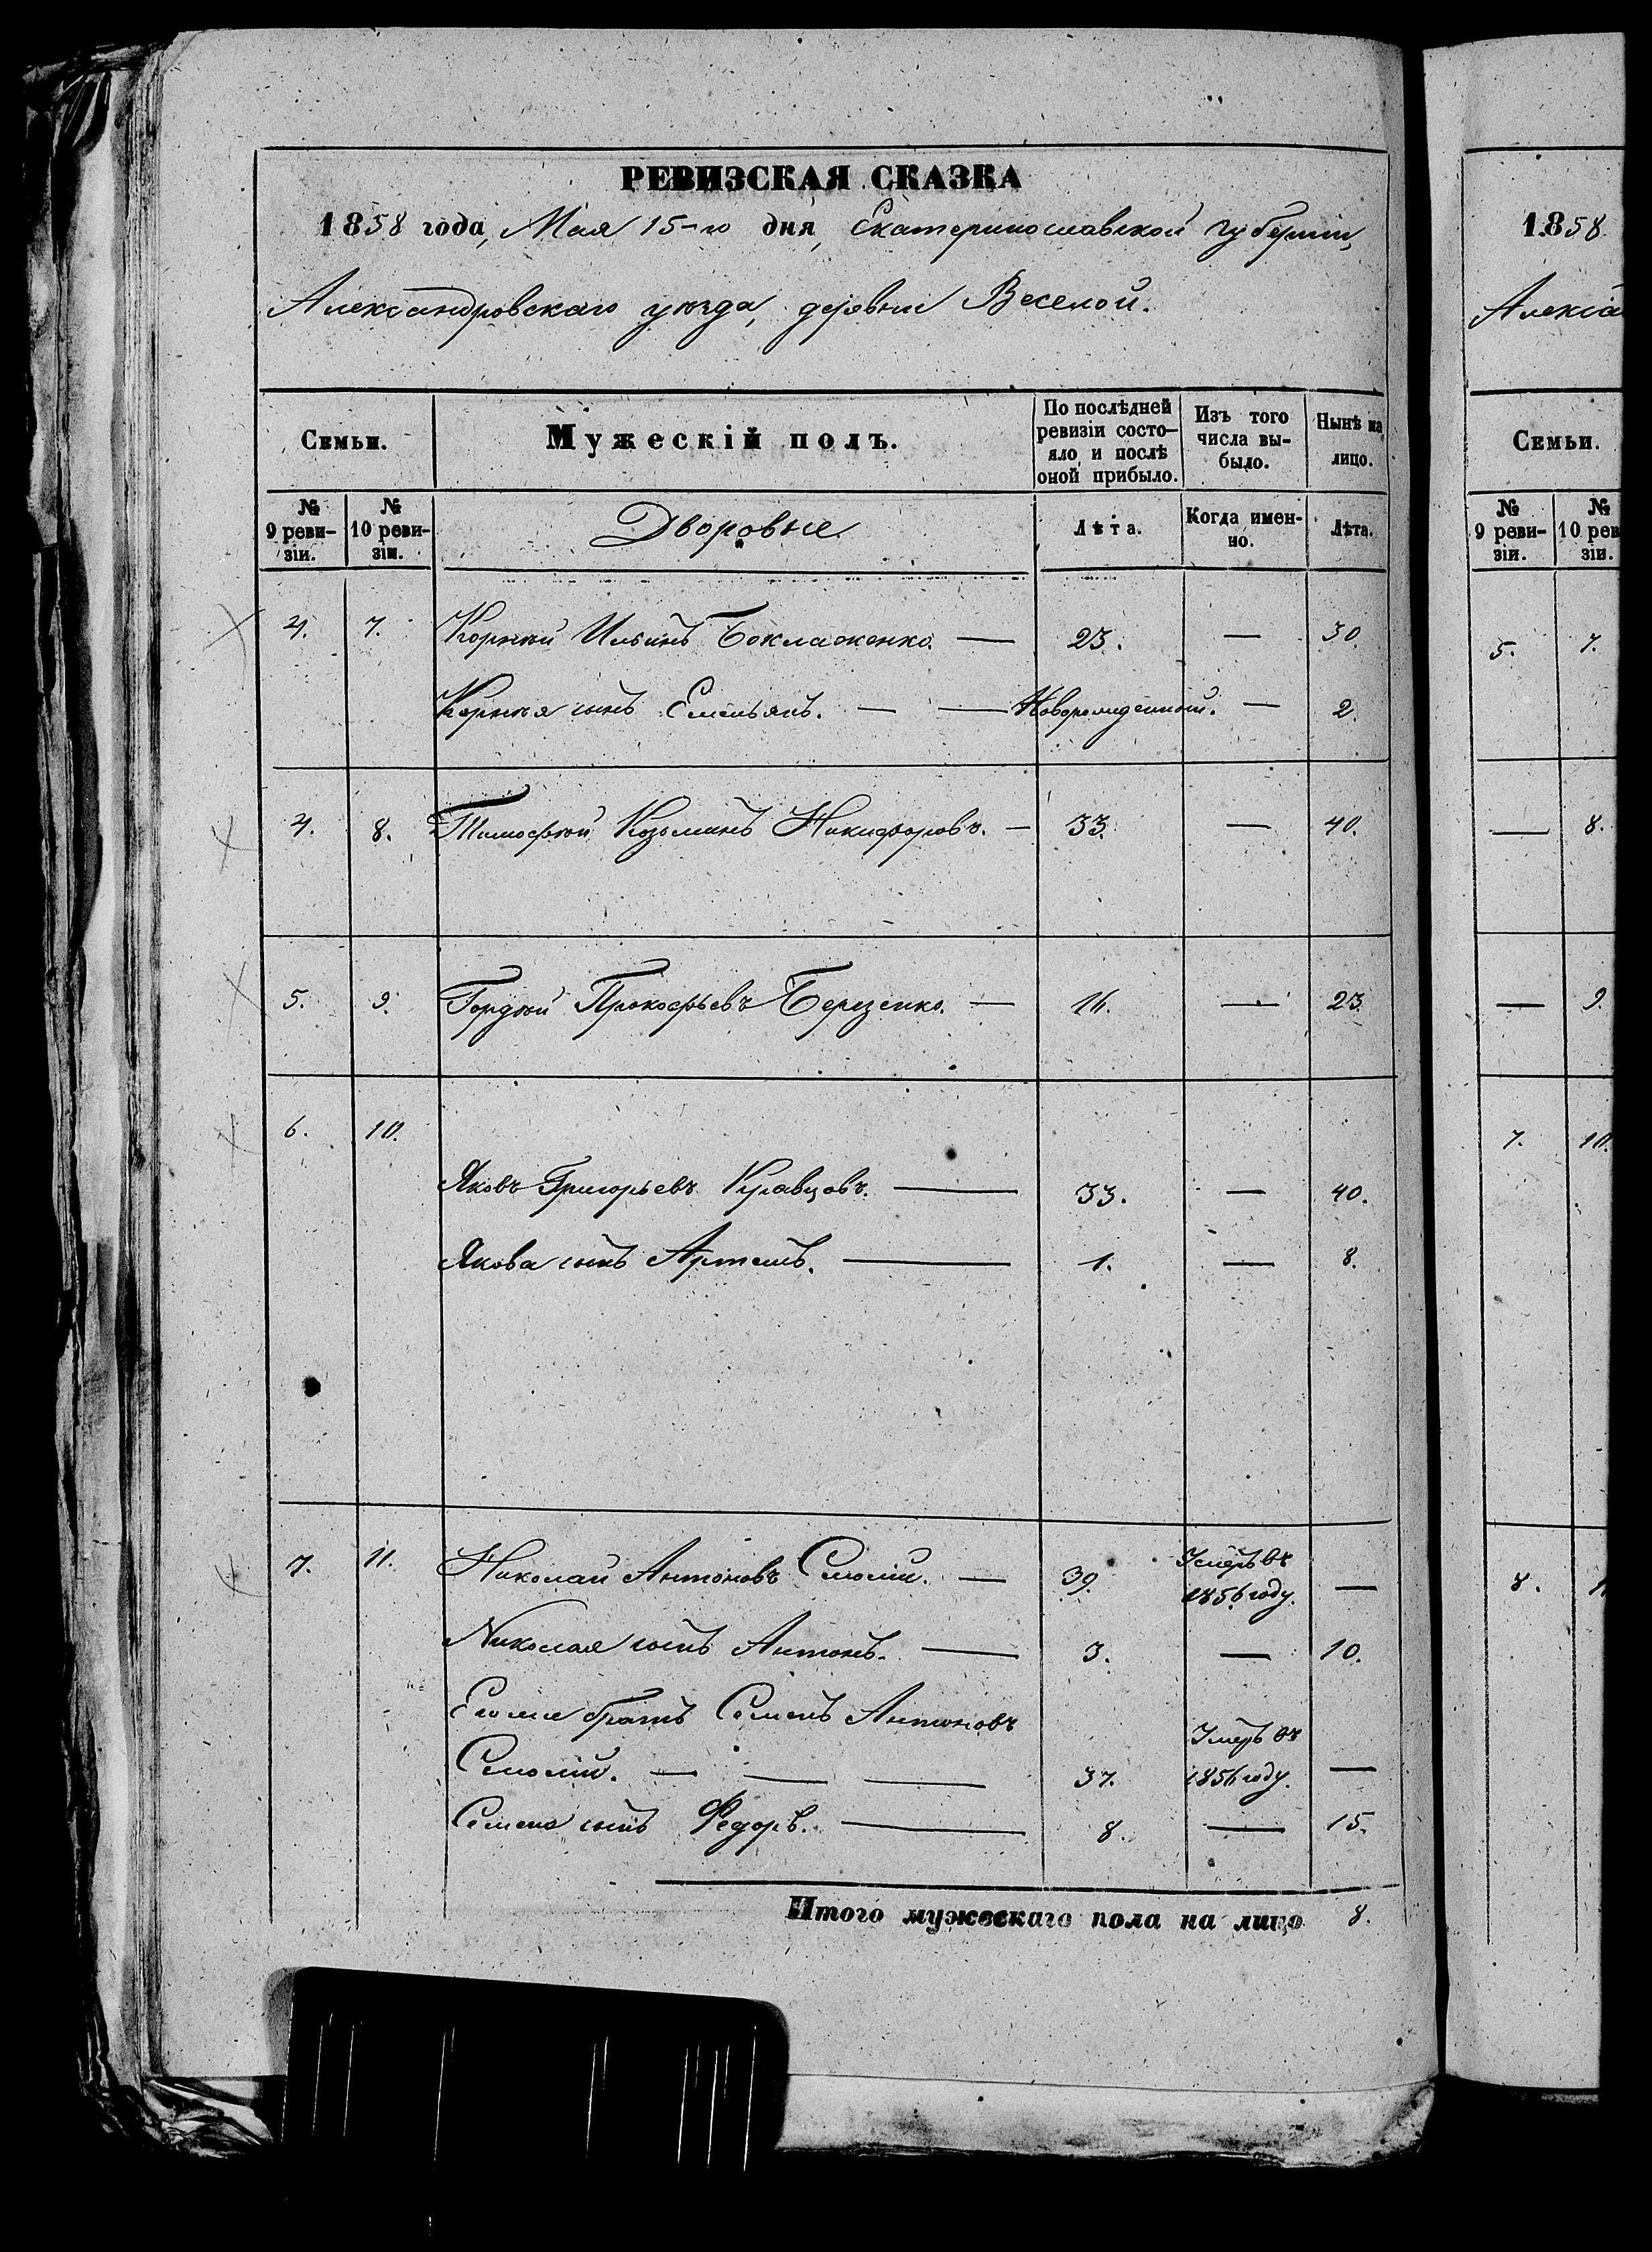 РЕВИЗСКАЯ СКАЗКА
1858 года, Мая 15-го дня, Екатеринославской губерніи,
Александровскаго уѣзда, деревни Веселой.
Семьи.
Мужескій полъ.
По послѣдней ревизіи состо-яло и послѣ оной прибыло.
Изъ того числа вы-было.
Нынѣ на лицо.
№ 9 реви-зіи.
№ 10 реви-зіи.
Дворовые
Лѣта.
Когда имен-но.
Лѣта.
4. 7. Корнѣй Ильинъ Баклаженко. — 23. — 30.
Корнѣя сынъ Емельянъ. — — Новорожденный. — 2.
4. 8. Тимофѣй Козьминъ Никифоровъ. — 33. — 40.
5. 9. Гордѣй Прокофьевъ Березенко. — 16. — 23.
6. 10.
Яковъ Григорьевъ Кравцовъ. — 33. — 40.
Якова сынъ Артемъ. — 1. — 8.
7. 11. Николай Антоновъ — 39. Умеръ въ 1856 году. —
Николая сынъ Антонъ. — 3. — 10.
Его же братъ Семенъ Антоновъ
— — — 37. Умеръ въ 1856 году. —
Семена сынъ Федоръ. — 8. — 15.
Итого мужескаго пола на лицо 8.
1858
Алекса
Семьи.
№ 9 реви-зіи.
№ 10 рев зіи.
5. 7.
— 8.
— 9.
7. 10.
8. 1